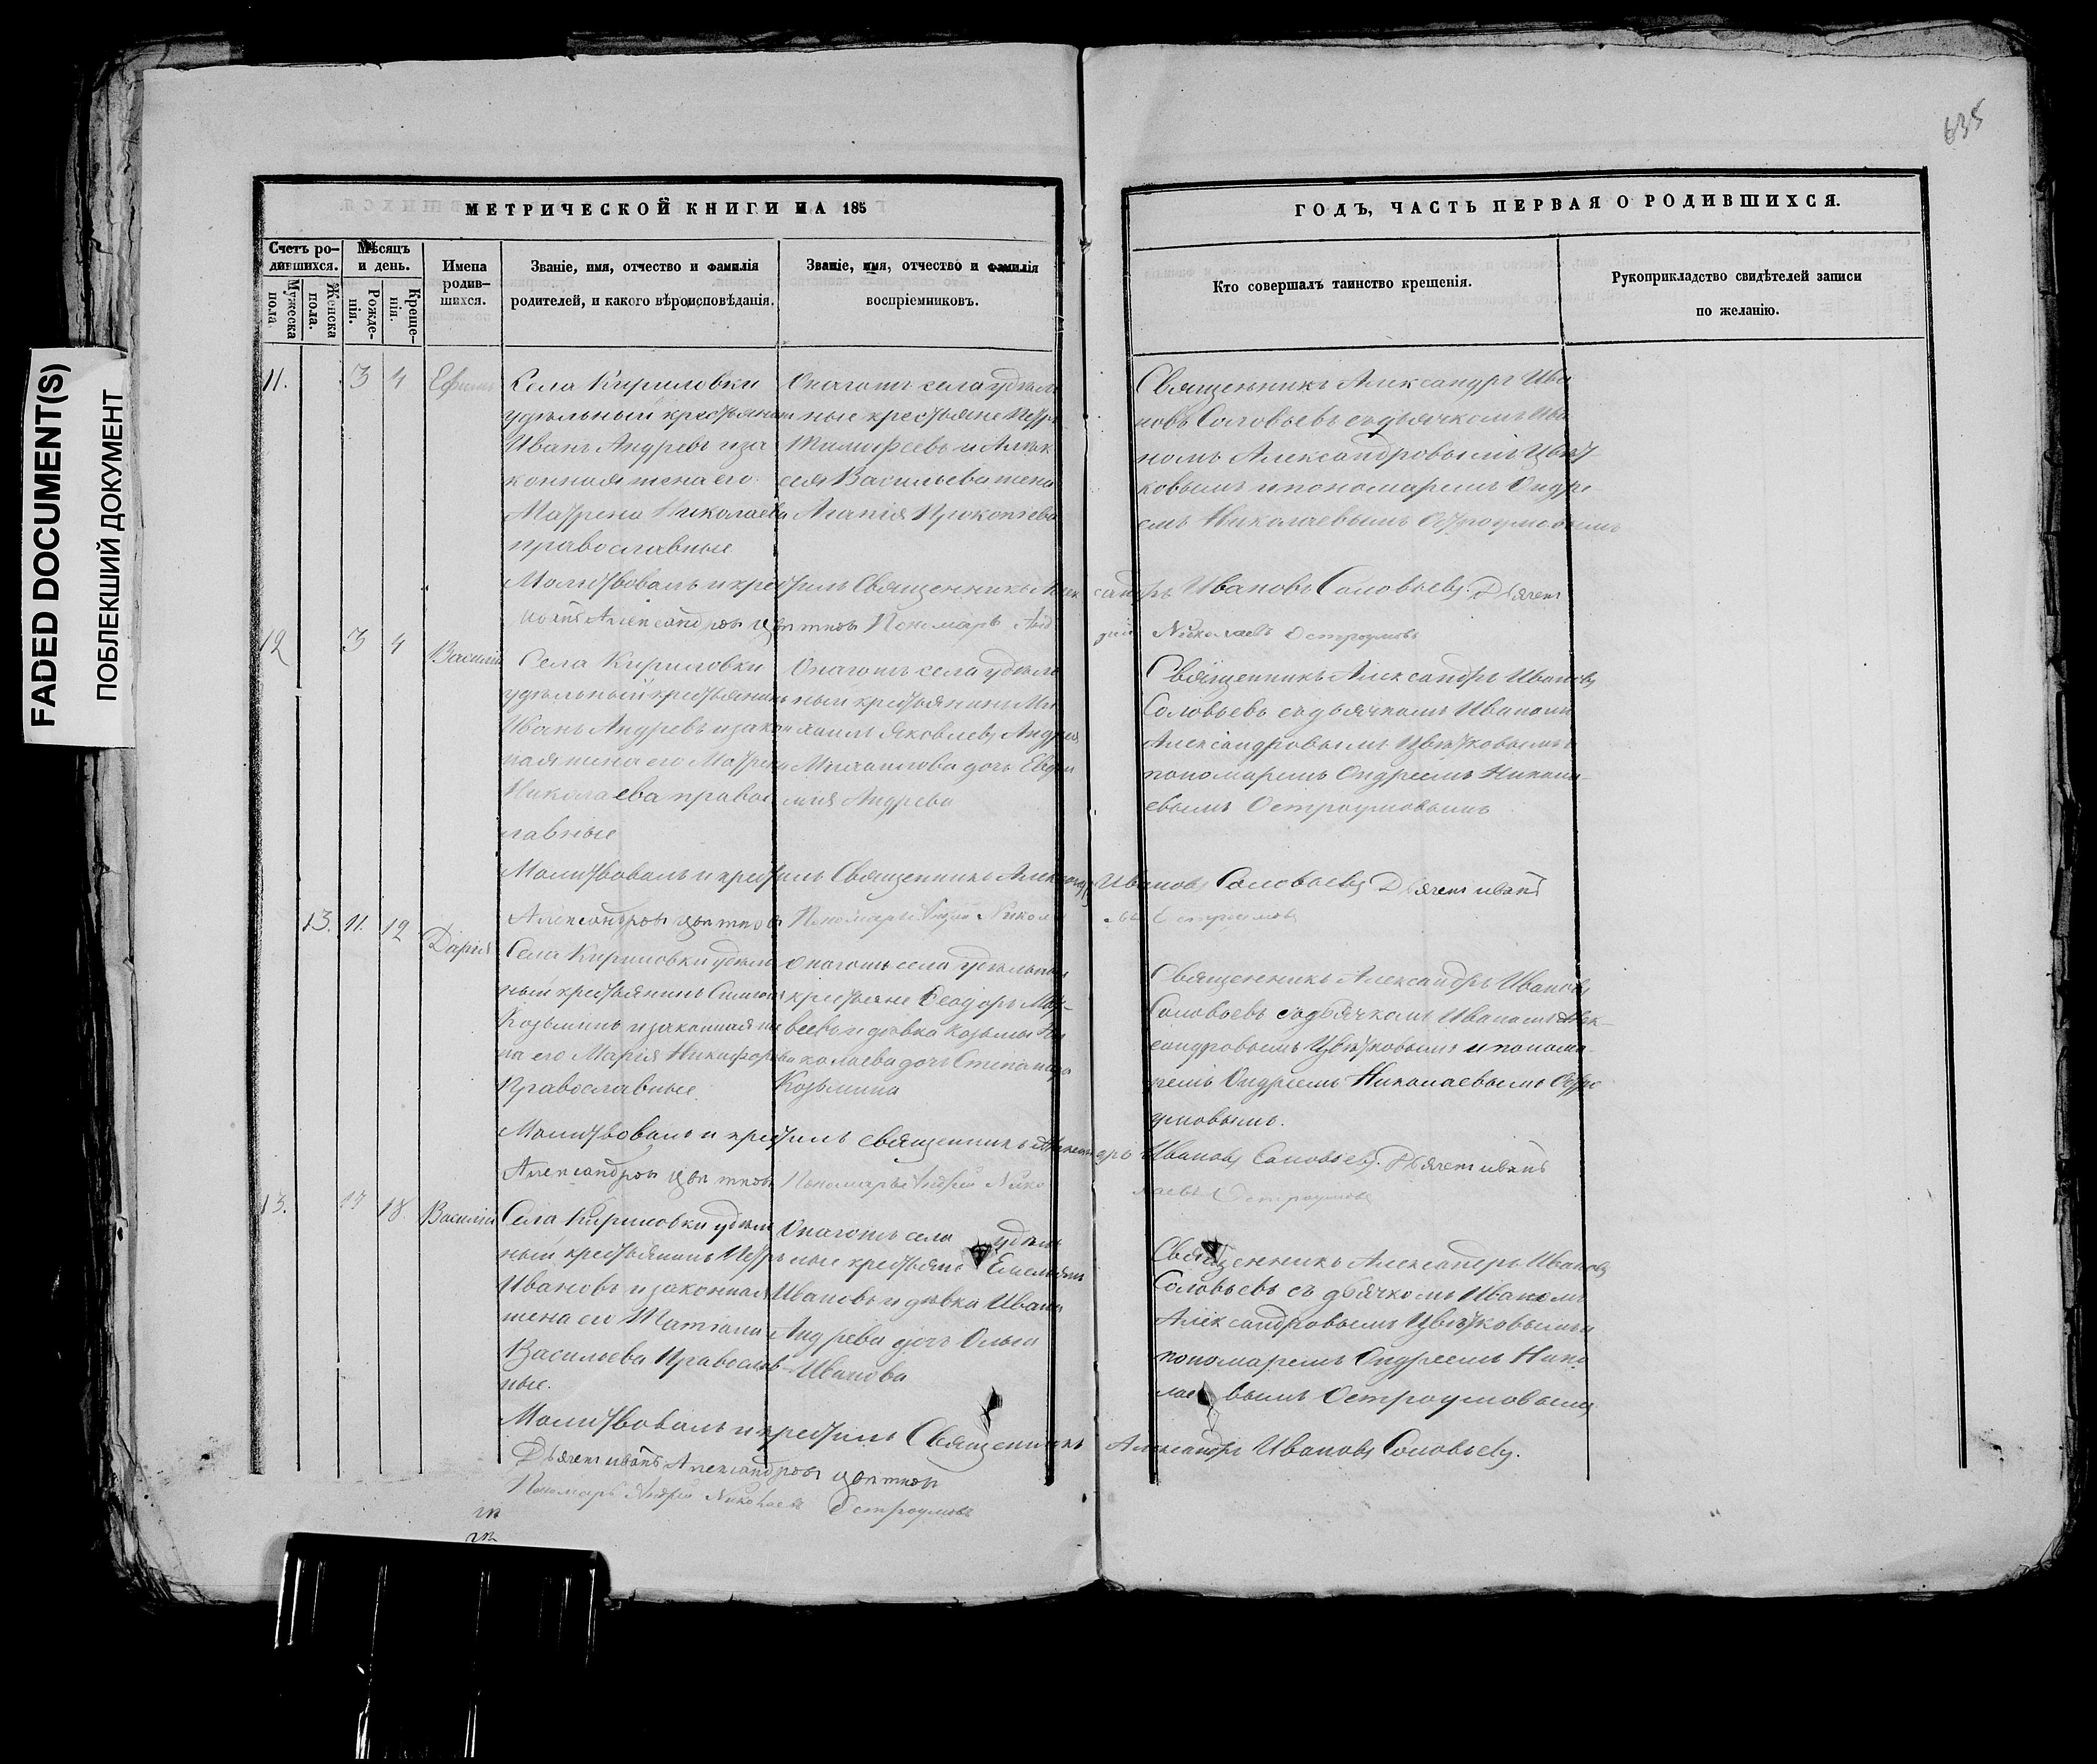 FADED DOCUMENT(S)
ПОБЛЕКШИЙ ДОКУМЕНТ
635
МЕТРИЧЕСКОЙ КНИГИ НА 185
ГОДЪ, ЧАСТЬ ПЕРВАЯ О РОДИВШИХСЯ.
Счетъ ро-
дившихся.
Мужеска
пола
Женска
пола.
Мѣсяцъ
и день.
Рожде-
нія.
Креще-
нія.
Имена
родив-
шихся.
Званіе, имя, отчество и фамилія
родителей, и какого вѣроисповѣданія.
Званіе, имя, отчество и фамилія
воспріемниковъ.
Кто совершалъ таинство крещенія.
Рукоприкладство свидѣтелей записи
по желанію.
11. 3 4 Ефимъ
Села Кириловки
удѣльный крестьянинъ
Иванъ Андревъ иза
конная жена его
Матрена Николаева
православные
Оногожъ села удѣль
ные крестьяне Петръ
Тимофеевъ и Алек
сея Васильева жена
Агапія Прокопіева
Священникъ Александръ Ива
новъ Соловьевъ съ дьячкомъ Ива
номъ Александровымъ Цвѣт
ковымъ и пономаремъ Андре
емъ Николаевымъ Остроумовымъ
Молитвовалъ и крестилъ Священникъ Александръ Ивановъ Соловьевъ. Дьячекъ
Иванъ Александровъ Цвѣтковъ Пономарь Андрей Николаевъ Остроумовъ
12 3 4 Василій
Села Кириловки
удѣльный крестьянинъ
Иванъ Андревъ и закон
ная жена его Матрена
Николаева правос
лавные
Оногожъ села удѣль
ный крестьянинъ Ми
хаилъ Яковлевъ Андрея
Михаилова дочь Евдо
Андрева
Священникъ Александръ Ивановъ
Соловьевъ съ дьячкомъ Иваномъ
Александровымъ Цвѣтковымъ и
пономаремъ Андреемъ Никола-
евымъ Остроумовымъ
Молитвовалъ и крестилъ Священникъ Александръ Ивановъ Соловьевъ Дьячекъ Иванъ
Александровъ Цвѣтковъ Пономарь Андрей Николаевъ Остроумовъ
13. 11. 12 Дарія
Села Кириловки удѣль
ный крестьянинъ Симеонъ
Козьминъ и законная же
на его Марія Никифорова
Православные.
Оногожъ села удѣльные
крестьяне Феодоръ Мат-
веевъ и дѣвка Козьмы Ни
колаева дочь Степанида
Козьмина
Священникъ Александръ Ивановъ
Соловьевъ съ дьячкомъ Иваномъ Алек-
сандровымъ Цвѣтковымъ и понома
ремъ Андреемъ Николаевымъ Остро
умовымъ.
Молитвовалъ и крестилъ священникъ Александръ Ивановъ Соловьевъ. Дьячекъ Иванъ
Александровъ Цвѣтковъ Пономарь Андрей Николаевъ Остроумовъ
13. 17 18 Василій
Села Кириловки удѣль
ный крестьянинъ Петръ
Ивановъ и законная
жена его Татіана
Васильева Православ
ные.
Оногожъ села удѣль
ные крестьяне Емельянъ
Ивановъ и дѣвка Ивана
Андрева дочь Ольга
Иванова
Священникъ Александръ Ивановъ
Соловьевъ съ дьячкомъ Иваномъ
Александровымъ Цвѣтковымъ и
пономаремъ Андреемъ Нико
лаевымъ Остроумовымъ
Молитвовалъ и крестилъ Священникъ Александръ Ивановъ Соловьевъ.
Дьячекъ Иванъ Александровъ Цвѣтковъ
Пономарь Андрей Николаевъ Остроумовъ